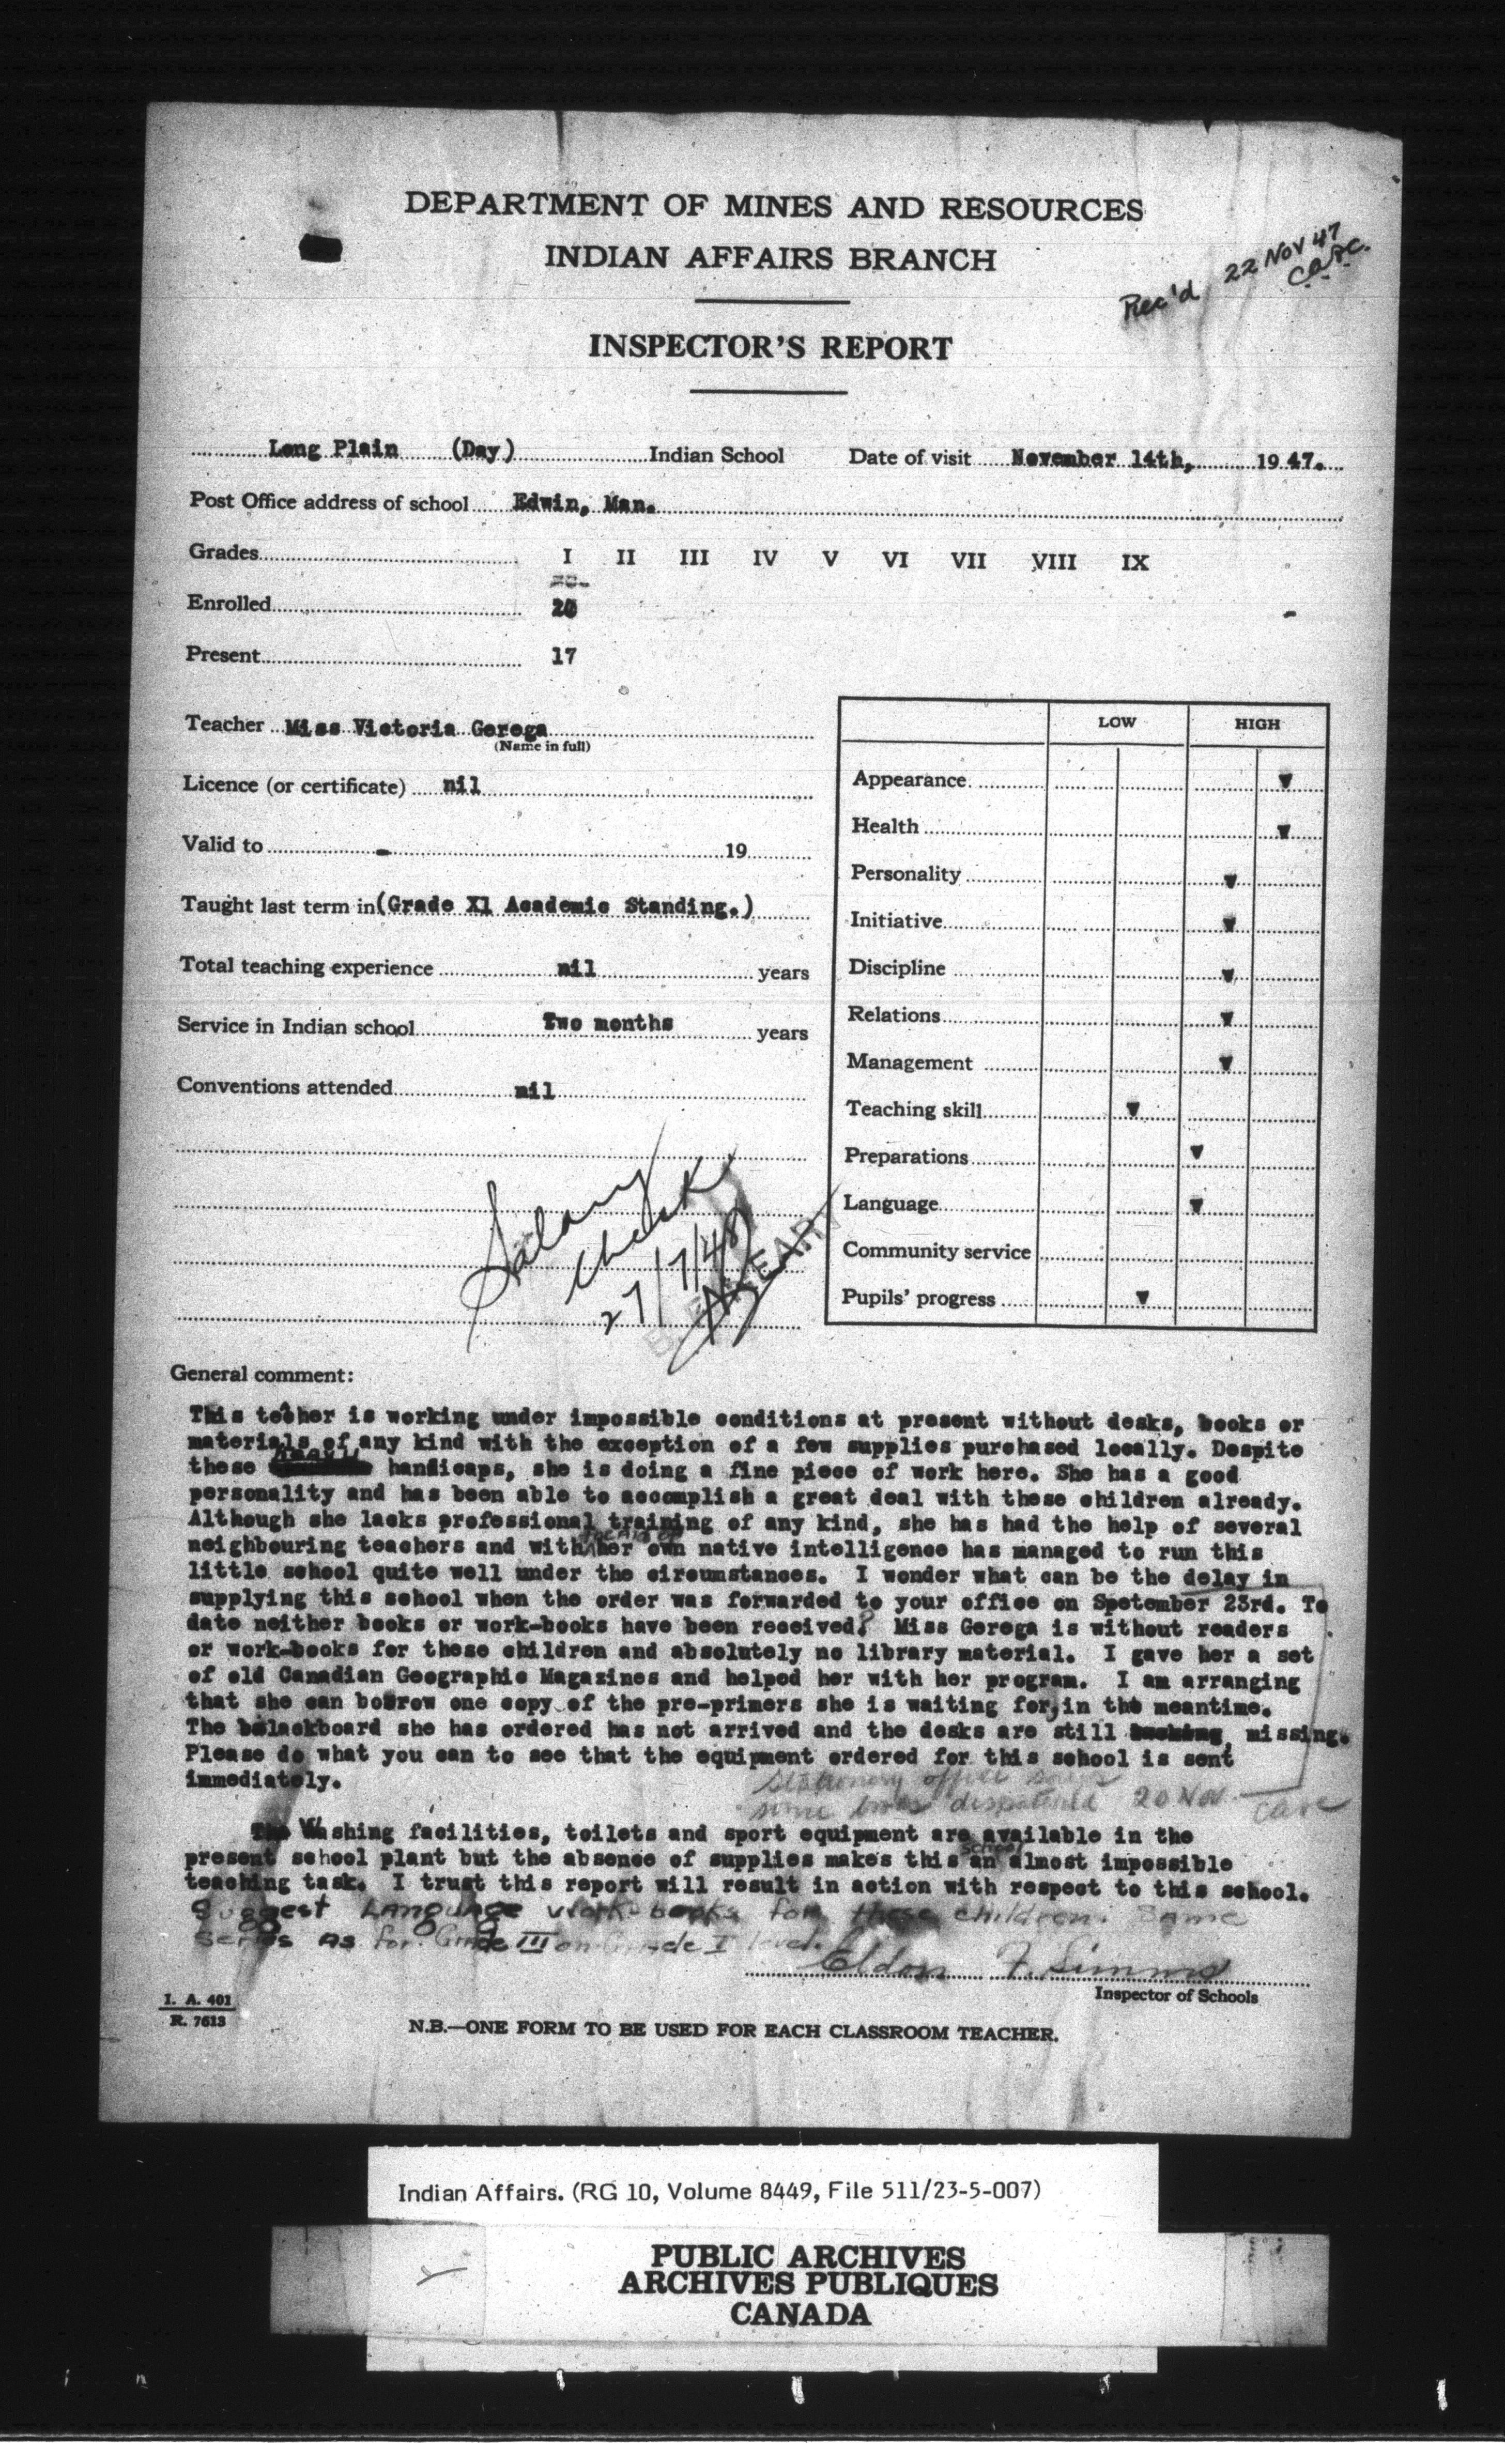 DEPARTMENT OF MINES AND RESOURCES
INDIAN AFFAIRS BRANCH
Rec'd 22 Nov 47
INSPECTOR'S REPORT
Long Plain (Day) Indian School Date of visit November 14th, 19 47.
Post Office address of school Edwin, Man.
Grades I II III IV V VI VII VIII IX
Enrolled
Present 17
Teacher Miss Victoria Gerega
(Name in full)
Licence (or certificate) nil
Valid to - 19
Taught last term in (Grade XI Academic Standing.)
Total teaching experience nil years
Service in Indian school Two months years
Conventions attended nil
LOW HIGH
Appearance
Health
Personality
Initiative
Discipline
Relations
Management
Teaching skill
Preparations
Language
Community service
Pupils' progress
Salary
check
27/7/48
General comment:
This teacher is working under impossible conditions at present without desks, books or
materials of any kind with the exception of a few supplies purchased locally. Despite
these heavy handicaps, she is doing a fine piece of work here. She has a good
personality and has been able to accomplish a great deal with these children already.
Although she lacks professional training of any kind, she has had the help of several
neighbouring teachers and with her own native intelligence has managed to run this
little school quite well under the circumstances. I wonder what can be the delay in
supplying this school when the order was forwarded to your office on Spetember 23rd. To
date neither books or work-books have been received? Miss Gerega is without readers
or work-books for these children and absolutely no library material. I gave her a set
of old Canadian Geographic Magazines and helped her with her program. I am arranging
that she can borrow one copy of the pre-primers she is waiting for, in the meantime.
The blackboard she has ordered has not arrived and the desks are still missing.
Please do what you can to see that the equipment ordered for this school is sent
immediately.
Stationery office says
some books dispatched 20 Nov.
Washing facilities, toilets and sport equipment are available in the
present school plant but the absence of supplies makes this school an almost impossible
teaching task. I trust this report will result in action with respect to this school.
Suggest Language work-books for these children. Same
Series as for Grade III on Grade I level.
Eldon F. Simms
Inspector of Schools
I. A. 401
R. 7613
N.B.—ONE FORM TO BE USED FOR EACH CLASSROOM TEACHER.
Indian Affairs. (RG 10, Volume 8449, File 511/23-5-007)
PUBLIC ARCHIVES
ARCHIVES PUBLIQUES
CANADA